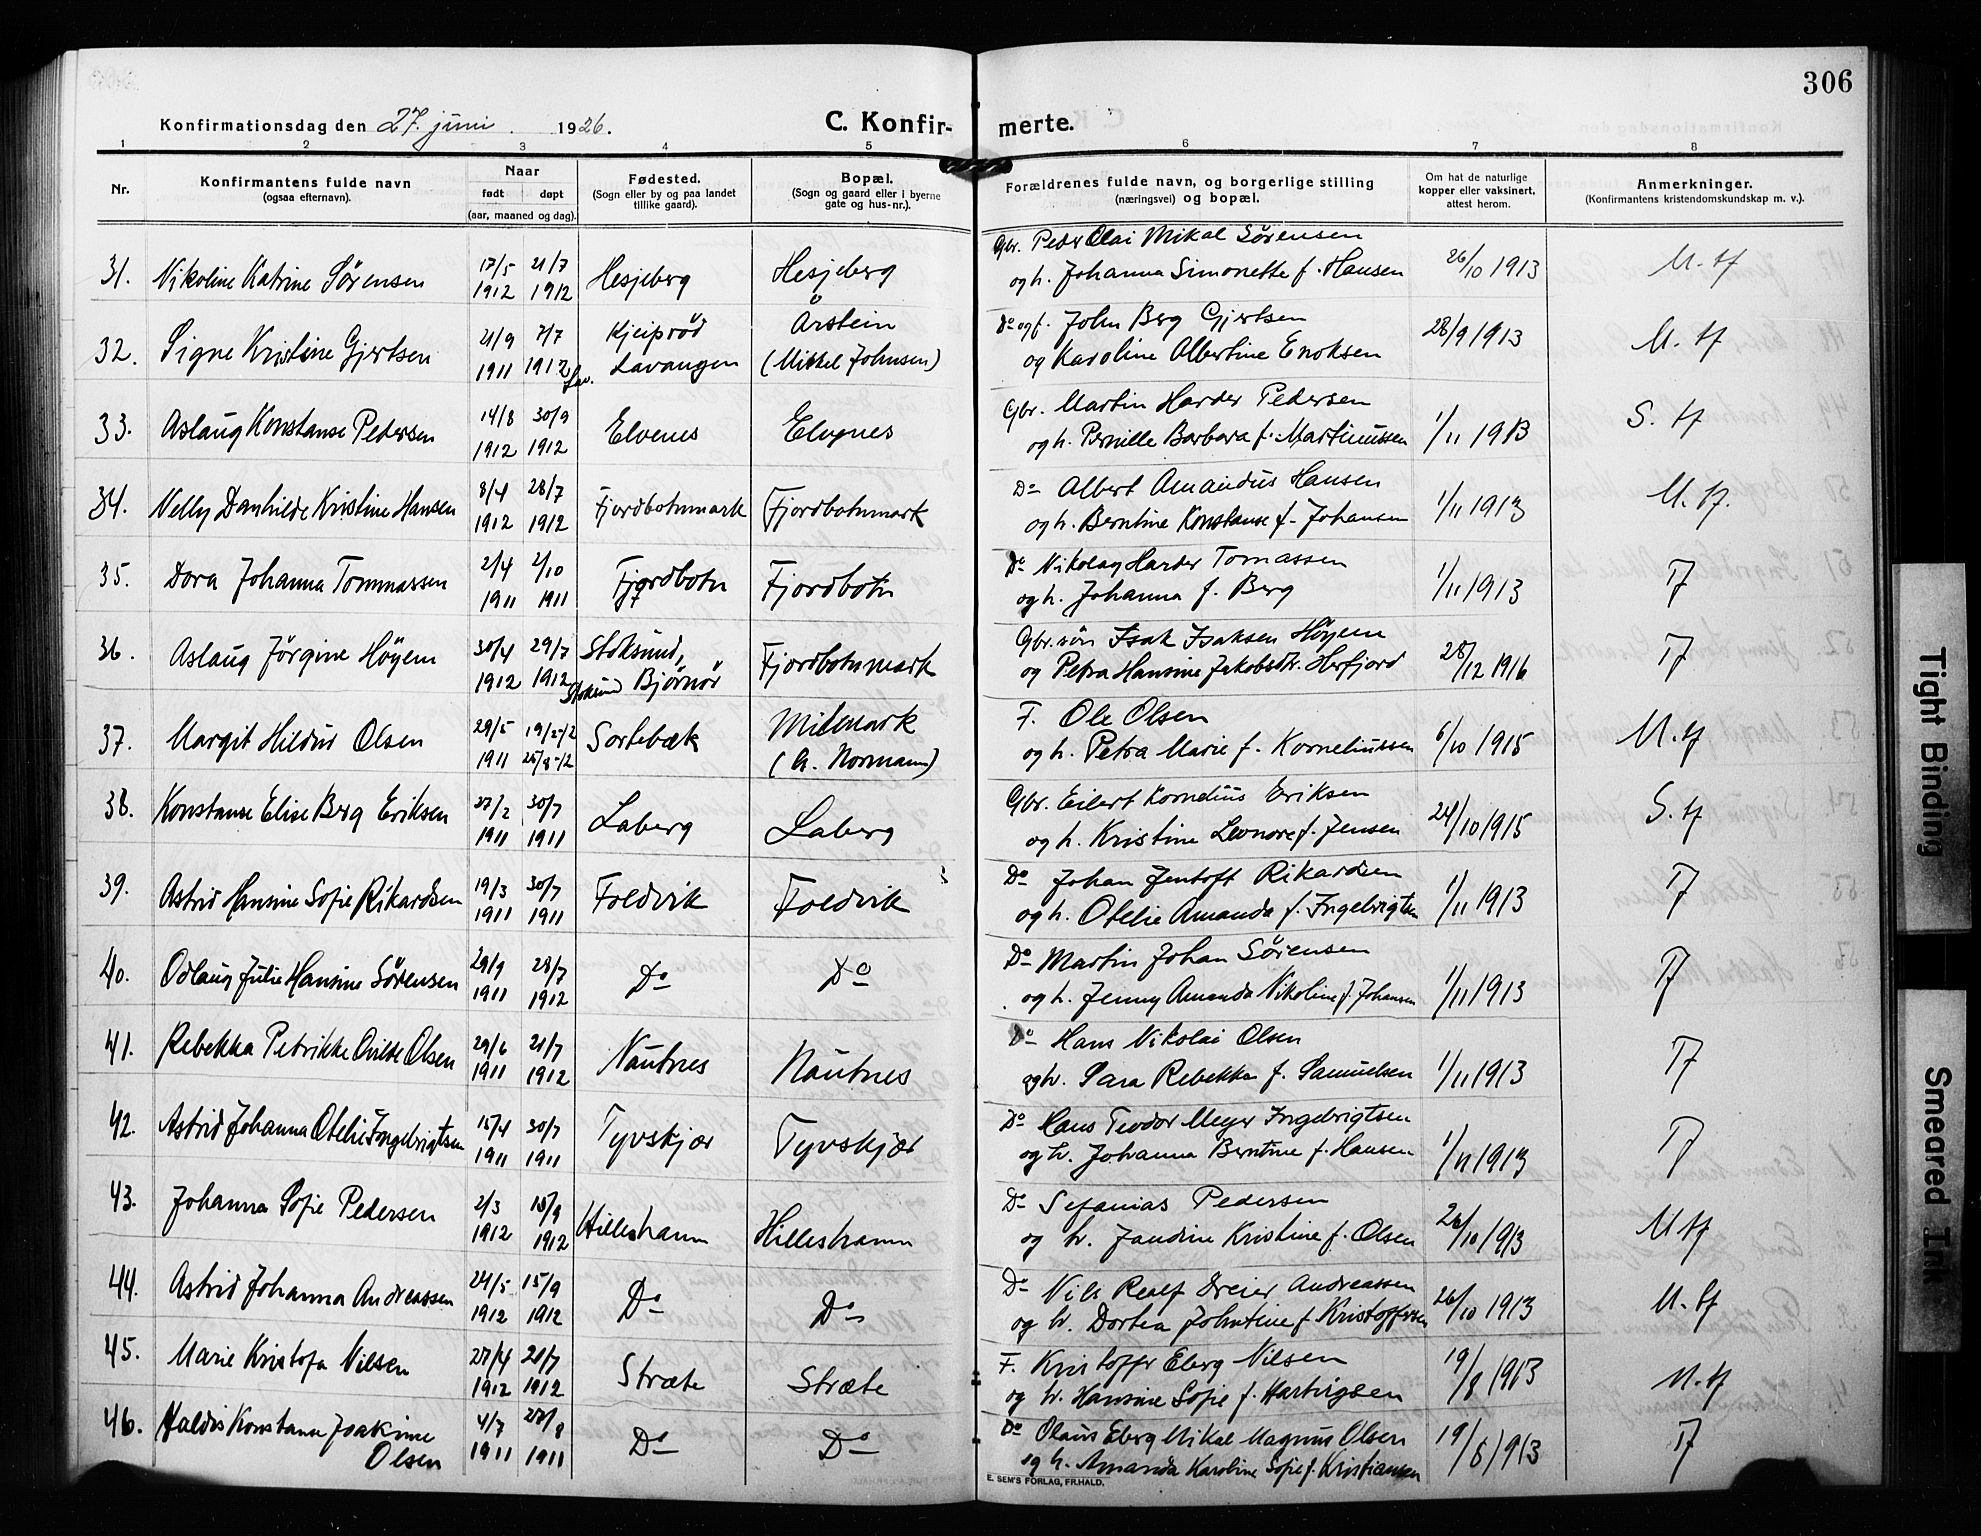 306
Konfirmationsdag den 27. juni 1926.
C. Konfir-
merte.
1 2 3 4 5 6 7 8
Nr.
Konfirmantens fulde navn
(ogsaa efternavn).
Naar
født døpt
(aar, maaned og dag).
Fødested.
(Sogn eller by og paa landet
tillike gaard).
Bopæl.
(Sogn og gaard eller i byerne
gate og hus-nr.).
Forældrenes fulde navn, og borgerlige stilling
(næringsvei) og bopæl.
Om hat de naturlige
kopper eller vaksinert,
attest herom.
Anmerkninger.
(Konfirmantens kristendomskundskap m. v.).
Gbr. Peder Olai Mikal Sørensen
31. Nikoline Katrine Sørensen 17/5 1912 21/7 1912 Hesjeberg Hesjeberg
og h. Johanna Simonette f. Hansen 26/10 1913 M. tf
32. Signe Kristine Gjertsen 21/9 1911 7/7 1912 Kjeiprød
Lav. Lavangen Årstein
(Mikkel Johnsen)
Do og f. John Berg Gjertsen
og Karoline Albertine Enoksen 28/9 1913 M. tf
33. Aslaug Konstanse Pedersen 14/8 1912 30/9 1912 Elvenes Elvenes
Gbr. Martin Harder Pedersen
og h. Pernille Barbara f. Martinussen 1/11 1913 S. tf
34. Nelly Danhilde Kristine Hansen 8/4 1912 28/7 1912 Fjordbotnmark Fjordbotnmark
Do Albert Amandus Hansen
og h. Berntine Konstanse f. Johansen 1/11 1913 M. tf.
35. Dora Johanna Tommassen 2/4 1911 2/10 1911 Fjordbotn Fjordbotn
Do Nikolay Harder Tomassen
og h. Johanna f. Berg 1/11 1913 Tf
36. Aslaug Jørgine Høyem 30/4 1912 29/7 1912 Stoksund,
Stoksund Bjørnør Fjordbotnmark
Gbr.søn Isak Isaksen Høyem
og Petra Hansine Jakobsdtr. Herfjord 28/12 1916 Tf
37. Margit Hildur Olsen 29/5 1911 19/2-12 25/8-12 Sortebæk Milmark
(A. Normann)
F. Ole Olsen
og h. Petra Marie f. Korneliussen 6/10 1915 M. tf
38. Konstanse Elise Berg Eriksen 27/2 1911 30/7 1911 Laberg Laberg
Gbr. Eilert Kornelius Eriksen
og h. Kristine Leonore f. Jensen 24/10 1915 S. tf
39. Astrid Hansine Sofie Rikardsen 19/3 1911 30/7 1911 Foldvik Foldvik
Do Johan Jentoft Rikardsen
og h. Otelie Amanda f. Ingebrigtsen 1/11 1913 Tf
40. Odlaug Julie Hansine Sørensen 29/9 1911 28/7 1912 Do Do
Do Martin Johan Sørensen
og h. Jenny Amanda Nikoline f. Johansen 1/11 1913 Tf
41. Rebekka Petrikke Ovilde Olsen 29/6 1911 21/7 1912 Nautnes Nautnes
Do Hans Nikolai Olsen
og h. Sara Rebekka f. Samuelsen 1/11 1913 Tf
42. Astrid Johanna Otelie Ingebrigtsen 15/4 1911 30/7 1911 Tyvskjær Tyvskjær
Do Hans Teodor Meyer Ingebrigtsen
og h. Johanna Berntine f. Hansen 1/11 1913 Tf
43. Johanna Sofie Pedersen 2/3 1912 15/9 1912 Hilleshamn Hilleshamn
Do Sefanias Pedersen
og h. Jandine Kristine f. Olsen 26/10 1913 M tf
44. Astrid Johanna Andreassen 24/5 1912 15/9 1912 Do Do
Do Nils Reolf Dreier Andreassen
og h. Dortea Johntine f. Kristoffersen 26/10 1913 M. tf
45. Marie Kristofa Nilsen 27/4 1912 21/7 1912 Stræte Stræte
F. Kristoffer Eberg Nilsen
og h. Hansine Sofie f. Hartvigsen 19/8 1913 M. tf
46. Haldis Konstanse Joakime
Olsen 4/7 1911 27/8 1911 Do Do
Do Olaus Eberg Mikal Magnus Olsen
og h. Amanda Karoline Sofie f. Kristiansen 19/8 1913 Tf
E. SEM'S FORLAG, FR.HALD.
Tight Binding
Smeared Ink